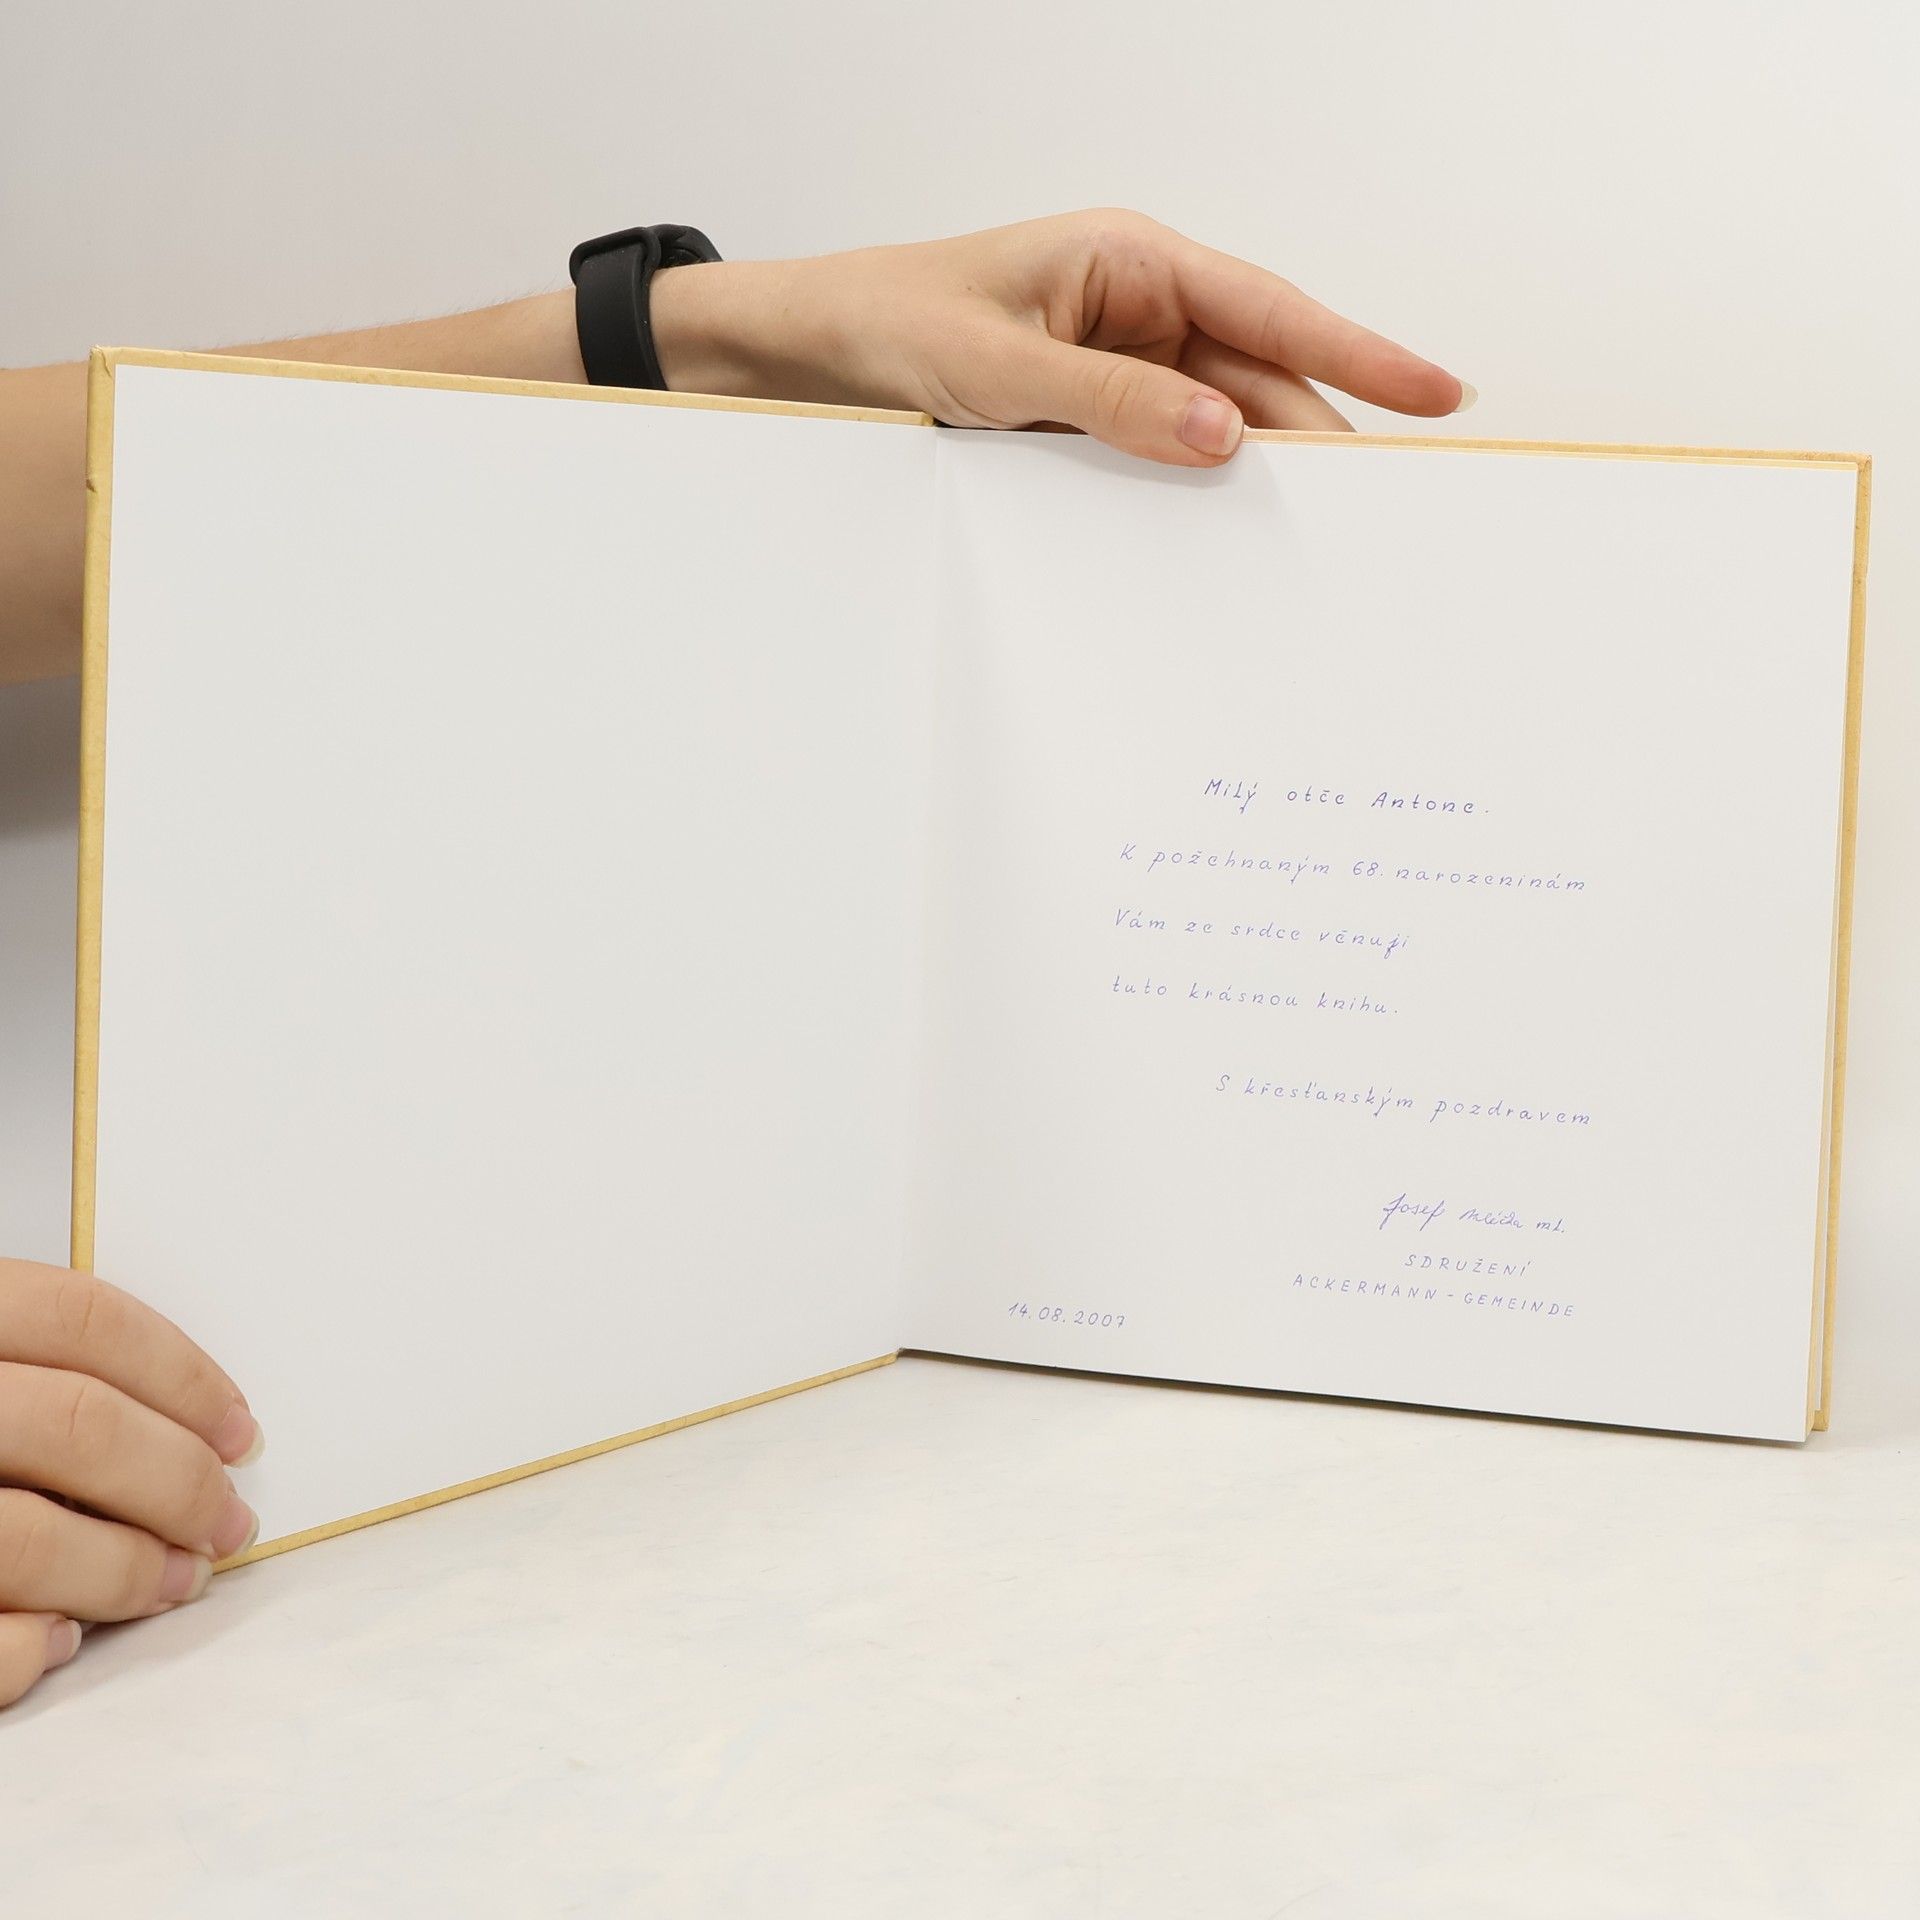 Milý otče Antone.
K požehnaným 68. narozeninám
Vám ze srdce věnuji
tuto krásnou knihu.
S křesťanským pozdravem
Josef ml.
SDRUŽENÍ
ACKERMANN - GEMEINDE
14.08.2007